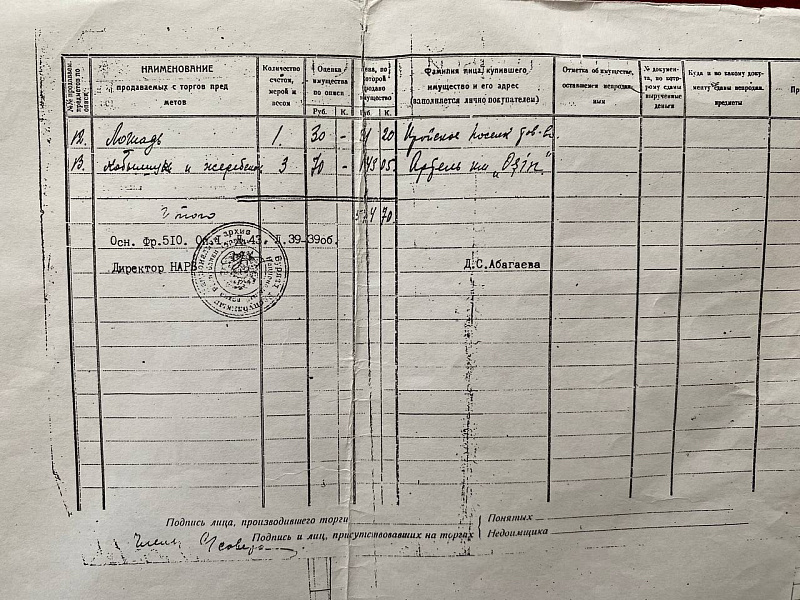 №№ продаваем. предметов по описи
НАИМЕНОВАНИЕ
продаваемых с торгов пред
метов
Количество
счетом,
мерой и
весом
Оценка
имущества
по описи
Руб. К.
Цена, по
которой
продано
имущество
Руб. К.
Фамилия лица, купившего
имущество и его адрес
(заполняется лично покупателем)
Отметка об имуществе,
оставшемся непродан-
ным
№ докумен-
та, по кото-
рому сданы
вырученные
деньги
Куда и по какому доку-
менту сданы непродан.
предметы
Пр
12. Лошадь 1. 30 - 31 20 поселк
13. и жеребенок 3 70 - 05 Артель им
Итого 70
Осн. Фр.510. Оп.1 Д.43. Л.39-39об.
Директор НАРБ Д.С.Абагаева
Подпись лица, производившего торги
Понятых
Член
Подписи лиц, присутствовавших на торгах
Недоимщика